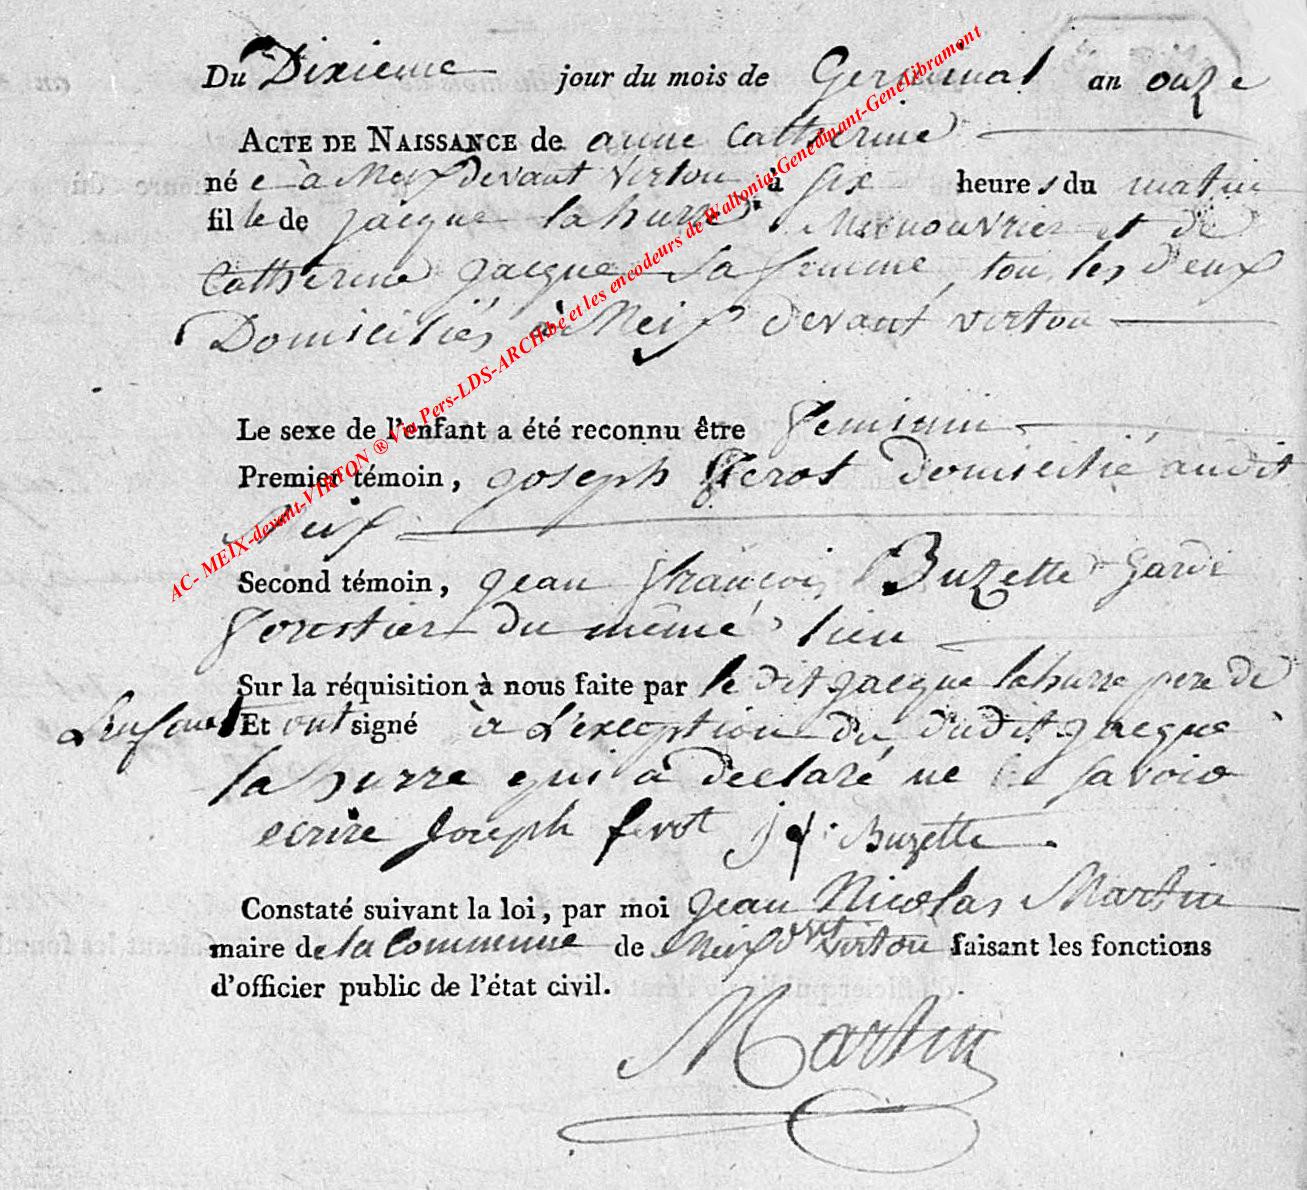 Du Dixieme jour du mois de Germinal an onze
ACTE DE NAISSANCE de anne Catherine
né e à Meix devant Virton à six heures du matin
fil le de jacque lahurre Manouvrier et de
Catherine jacque sa femme, tou les deux
Domiciliés à Meix devant virton
Le sexe de l'enfant a été reconnu être feminin
Premier témoin, joseph ferot domicilié audit
Meix
Second témoin, jean françois Buzette garde
forestier du même lieu
Sur la réquisition à nous faite par le dit jacque lahurre pere de
L'enfant Et ont signé à l'exception du dudit jacque
lahurre qui a declaré ne savoir
ecrire Joseph ferot j f Buzette
Constaté suivant la loi, par moi jean Nicolas Martin
maire de la Commune de Meix dvt virton faisant les fonctions
d'officier public de l'état civil.
Martin
AC- MEIX-devant-VIRTON ® Via Pers-LDS-ARCH.be et les encodeurs de Wallonia-Genedinant-GeneLibramont